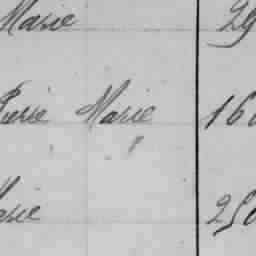 Marie 29
Pierre Marie 160
Marie 250